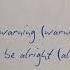 warning (warn
be alright (al